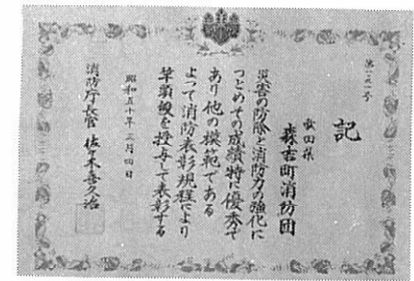 記
秋田県
森吉町消防団
災害の防除と消防力の強化に
つとめその成績特に優秀で
あり他の模範である
よって消防表彰規程により
竿頭綬を授与して表彰する
昭和五十年三月四日
消防庁長官 佐々木喜久治